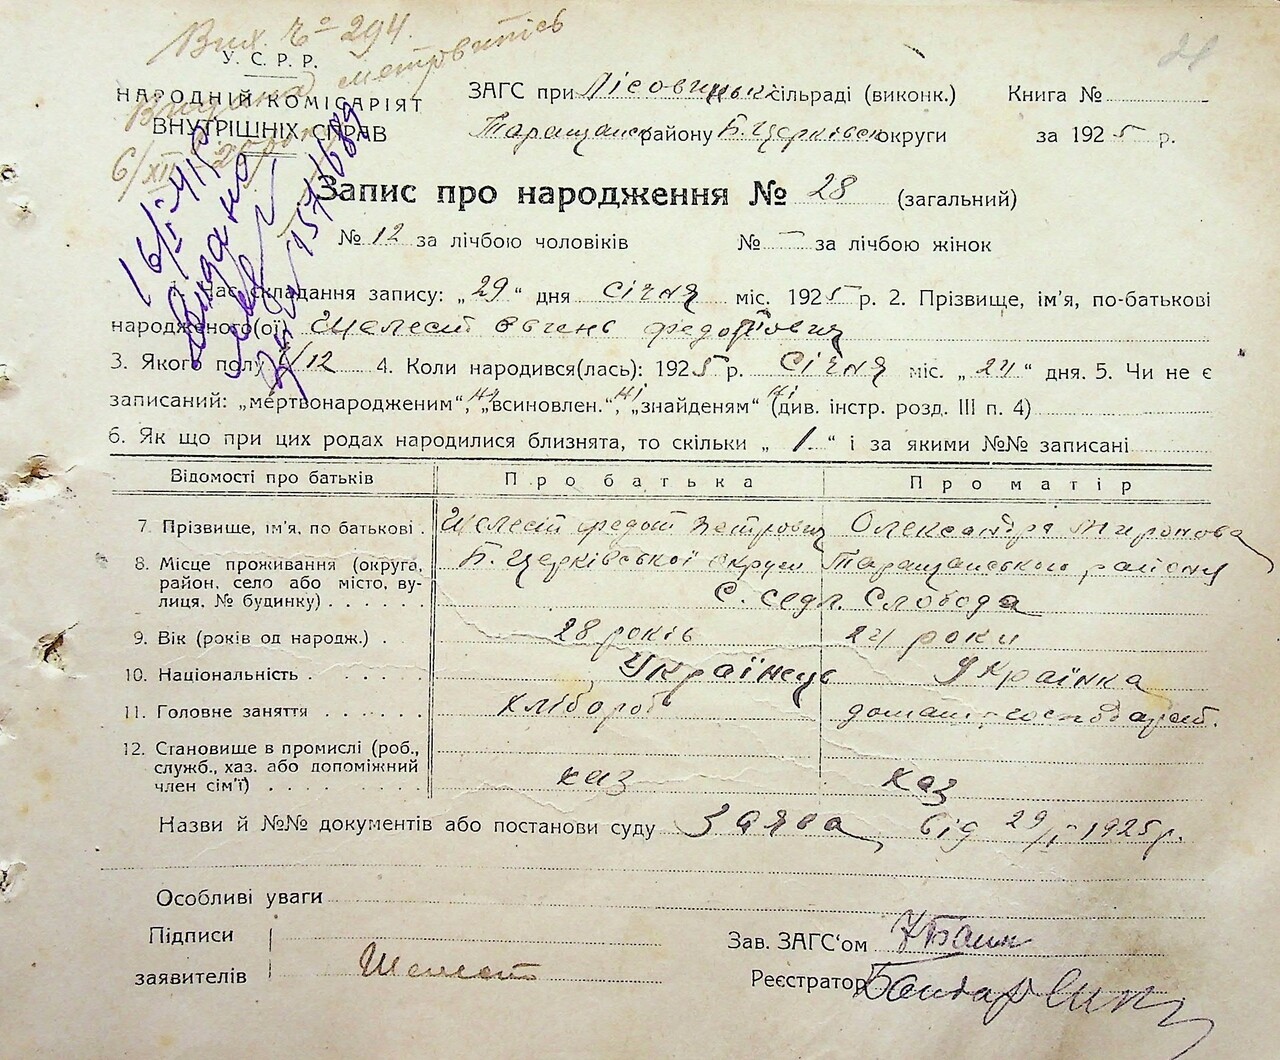 Вих. № 294.
У. С. Р. Р.
НАРОДНІЙ КОМІСАРІЯТ
ВНУТРІШНІХ СПРАВ
ЗАГС при Лісовицькій сільраді (виконк.)
Книга №
Таращанськ району Б. Церківськ округи
за 1925 р.
Запис про народження № 28 (загальний)
№ 12 за лічбою чоловіків № — за лічбою жінок
1. Час складання запису: „29“ дня Січня міс. 1925 р. 2. Прізвище, ім'я, по-батькові
народженого(ої) Шелест Євгень Федотович
3. Якого полу ч/12 4. Коли народився(лась): 1925 р. Січня міс. „24“ дня. 5. Чи не є
записаний: „мертвонародженим“, ні „всиновлен.“, ні „знайденям“ ні (див. інстр. розд. III п. 4)
6. Як що при цих родах народилися близнята, то скільки „1“ і за якими №№ записані
Відомості про батьків Про батька Про матір
7. Прізвище, ім'я, по батькові Шелест Федот Петрович Олександра Миронова
8. Місце проживання (округа, Б. Церківської округи Таращанського району
район, село або місто, ву-
лиця. № будинку) с. Слобода
9. Вік (років од народж.) 28 років 24 роки
10. Національність Українець Українка
11. Головне заняття хлібороб
12. Становище в промислі (роб.,
служб., хаз. або допоміжний
член сім'ї) хаз хаз
Назви й №№ документів або постанови суду Заява від 29/I 1925 р.
Особливі уваги
Підписи
заявителів Шелест
Зав. ЗАГС'ом
Реєстратор